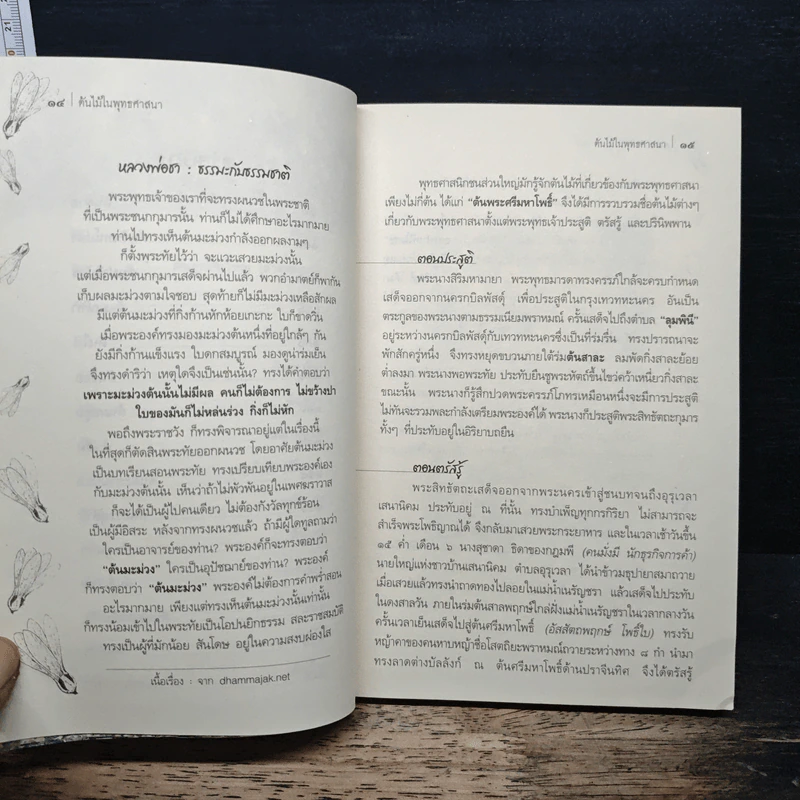 21
๑๔ | ต้นไม้ในพุทธศาสนา
หลวงพ่อชา : ธรรมะกับธรรมชาติ
พระพุทธเจ้าของเราที่จะทรงผนวชในพระชาติ
ที่เป็นพระชนกกุมารนั้น ท่านก็ไม่ได้ศึกษาอะไรมากมาย
ท่านไปทรงเห็นต้นมะม่วงกำลังออกผลงามๆ
ก็ตั้งพระทัยไว้ว่า จะแวะเสวยมะม่วงนั้น
แต่เมื่อพระชนกกุมารเสด็จผ่านไปแล้ว พวกอำมาตย์ก็พากัน
เก็บผลมะม่วงตามใจชอบ สุดท้ายก็ไม่มีมะม่วงเหลือสักผล
มีแต่ต้นมะม่วงที่กิ่งก้านหักห้อยเกะกะ ใบก็ขาดวิ่น
เมื่อพระองค์ทรงมองมะม่วงต้นหนึ่งที่อยู่ใกล้ๆ กัน
ยังมีกิ่งก้านแข็งแรง ใบดกสมบูรณ์ มองดูน่าร่มเย็น
จึงทรงดำริว่า เหตุใดจึงเป็นเช่นนั้น? ทรงได้คำตอบว่า
เพราะมะม่วงต้นนั้นไม่มีผล คนก็ไม่ต้องการ ไม่ขว้างปา
ใบของมันก็ไม่หล่นร่วง กิ่งก็ไม่หัก
พอถึงพระราชวัง ก็ทรงพิจารณาอยู่แต่ในเรื่องนี้
ในที่สุดก็ตัดสินพระทัยออกผนวช โดยอาศัยต้นมะม่วง
เป็นบทเรียนสอนพระทัย ทรงเปรียบเทียบพระองค์เอง
กับมะม่วงต้นนั้น เห็นว่าถ้าไม่พัวพันอยู่ในเพศฆราวาส
ก็จะได้เป็นผู้ไปคนเดียว ไม่ต้องกังวลทุกข์ร้อน
เป็นผู้มีอิสระ หลังจากทรงผนวชแล้ว ถ้ามีผู้ใดทูลถามว่า
ใครเป็นอาจารย์ของท่าน? พระองค์ก็จะทรงตอบว่า
“ต้นมะม่วง” ใครเป็นอุปัชฌาย์ของท่าน? พระองค์
ก็ทรงตอบว่า “ต้นมะม่วง” พระองค์ไม่ต้องการคำพร่ำสอน
อะไรมากมาย เพียงแต่ทรงเห็นต้นมะม่วงนั้นเท่านั้น
ก็ทรงน้อมเข้าไปในพระทัยเป็นโอปนยิกธรรม สละราชสมบัติ
ทรงเป็นผู้ที่มักน้อย สันโดษ อยู่ในความสงบผ่องใส
เนื้อเรื่อง : จาก dhammajak.net
ต้นไม้ในพุทธศาสนา | ๑๕
พุทธศาสนิกชนส่วนใหญ่มักรู้จักต้นไม้ที่เกี่ยวข้องกับพระพุทธศาสนา
เพียงไม่กี่ต้น ได้แก่ “ต้นพระศรีมหาโพธิ์” จึงได้มีการรวบรวมชื่อต้นไม้ต่างๆ
เกี่ยวกับพระพุทธศาสนาตั้งแต่พระพุทธเจ้าประสูติ ตรัสรู้ และปรินิพพาน
ตอนประสูติ
พระนางสิริมหามายา พระพุทธมารดาทรงครรภ์ใกล้จะครบกำหนด
เสด็จออกจากนครกบิลพัสดุ์ เพื่อประสูติในกรุงเทวทหะนคร อันเป็น
ตระกูลของพระนางตามธรรมเนียมพราหมณ์ ครั้นเสด็จไปถึงตำบล “ลุมพินี”
อยู่ระหว่างนครกบิลพัสดุ์กับเทวทหะนครซึ่งเป็นที่ร่มรื่น ทรงปรารถนาจะ
พักสักครู่หนึ่ง จึงทรงหยุดขบวนภายใต้ร่มต้นสาละ ลมพัดกิ่งสาละย้อย
ต่ำลงมา พระนางพอพระทัย ประทับยืนชูพระหัตถ์ขึ้นไขว่คว้าเหนี่ยวกิ่งสาละ
ขณะนั้น พระนางก็รู้สึกปวดพระครรภ์โภทรเหมือนหนึ่งจะมีการประสูติ
ไม่ทันจะรวมพละกำลังเตรียมพระองค์ได้ พระนางก็ประสูติพระสิทธัตถะกุมาร
ทั้งๆ ที่ประทับอยู่ในอิริยาบถยืน
ตอนตรัสรู้
พระสิทธัตถะเสด็จออกจากพระนครเข้าสู่ชนบทจนถึงอุรุเวลา
เสนานิคม ประทับอยู่ ณ ที่นั้น ทรงบำเพ็ญทุกกรกิริยา ไม่สามารถจะ
สำเร็จพระโพธิญาณได้ จึงกลับมาเสวยพระกระยาหาร และในเวลาเช้าวันขึ้น
๑๕ ค่ำ เดือน ๖ นางสุชาดา ธิดาของกฎมพี (คนมั่งมี นักธุรกิจการค้า)
นายใหญ่แห่งชาวบ้านเสนานิคม ตำบลอุรุเวลา ได้นำข้าวมธุปายาสมาถวาย
เมื่อเสวยแล้วทรงนำถาดทองไปลอยในแม่น้ำเนรัญชรา แล้วเสด็จไปประทับ
ในดงสาลวัน ภายในร่มต้นสาลพฤกษ์ใกล้ฝั่งแม่น้ำเนรัญชราในเวลากลางวัน
ครั้นเวลาเย็นเสด็จไปสู่ต้นศรีมหาโพธิ์ (อัสสัตถพฤกษ์ โพธิ์ใบ) ทรงรับ
หญ้าคาของคนหาบหญ้าชื่อโสตถิยะพราหมณ์ถวายระหว่างทาง ๘ กำ นำมา
ทรงลาดต่างบัลลังก์ ณ ต้นศรีมหาโพธิ์ด้านปราจีนทิศ จึงได้ตรัสรู้